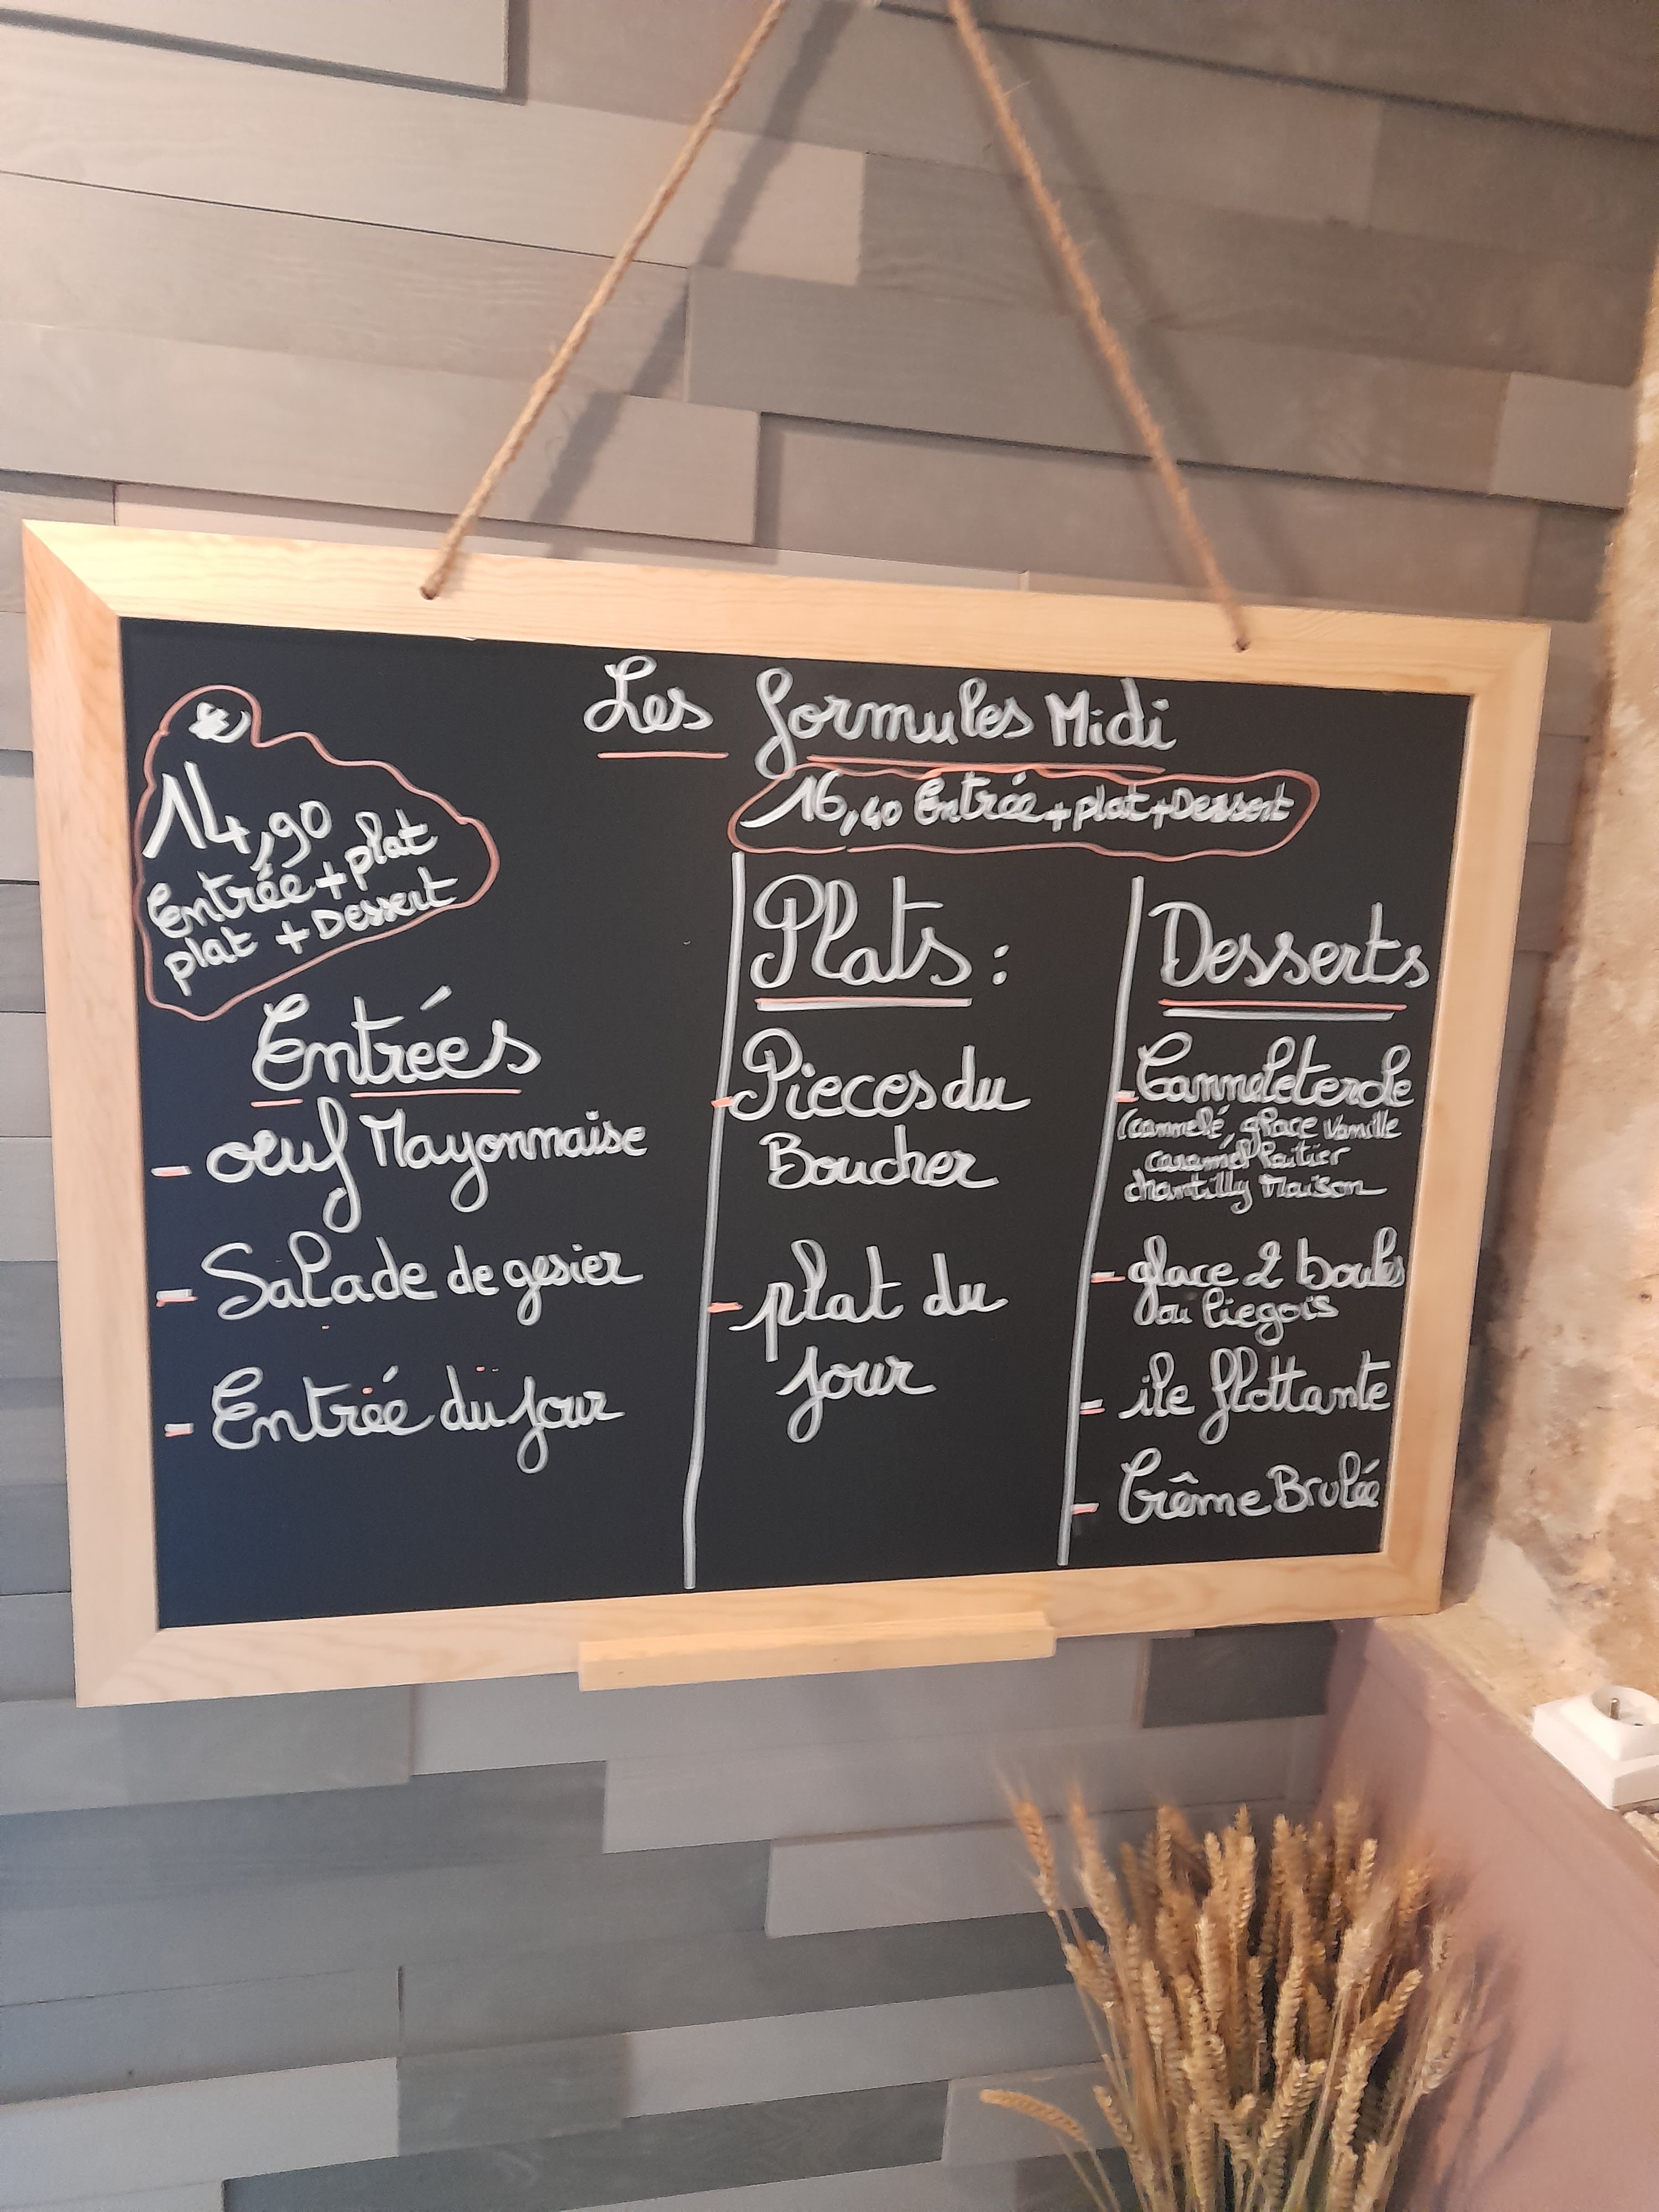 Les formules Midi
14,90
Entrée + plat
plat + Dessert
16,40 Entrée + plat + Dessert
Entrées
- oeuf Mayonnaise
- Salade de gesier
- Entrée du jour
Plats :
- Pieces du
Boucher
- plat du
jour
Desserts
- Canneleterole
(cannelé, glace vanille
caramel laitier
chantilly Maison
- glace 2 boules
ou liegois
- ile flottante
- Crême Brulée